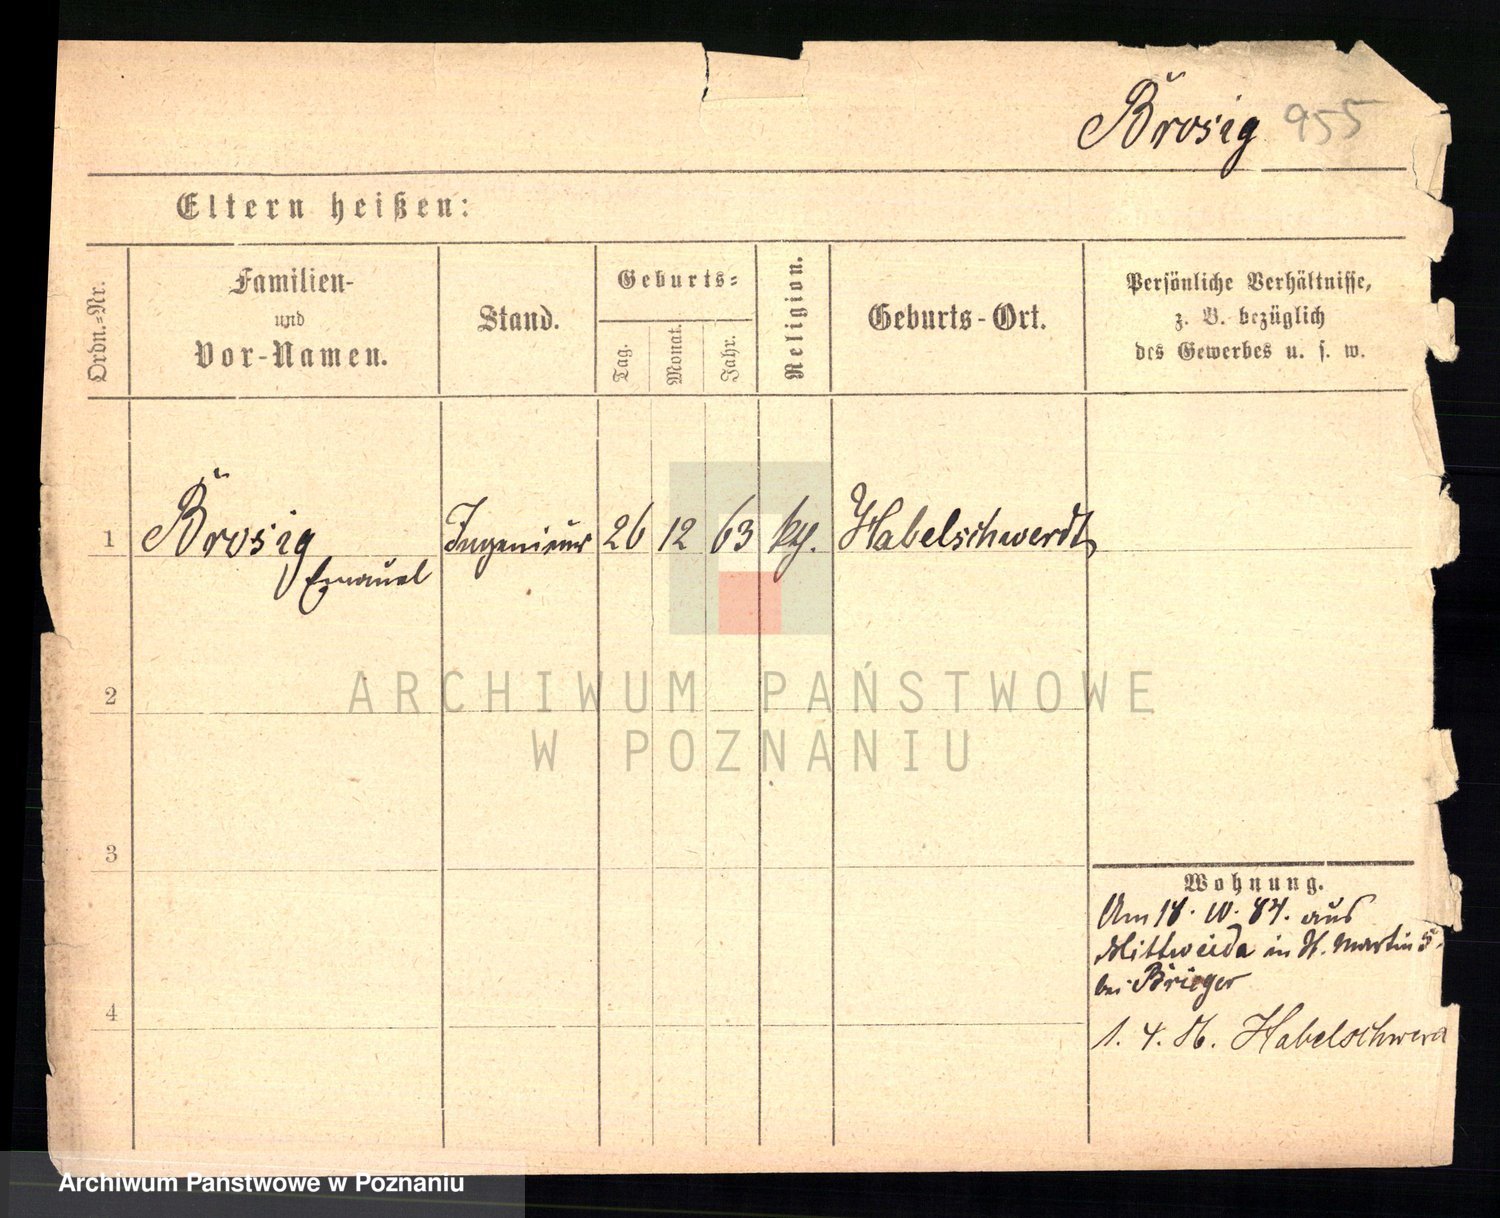 Brosig 955
Eltern heißen:
Ordn.-Nr.
Familien-
und
Vor-Namen.
Stand.
Geburts-
Tag.
Monat.
Jahr.
Religion.
Geburts-Ort.
Persönliche Verhältnisse,
z. B. bezüglich
des Gewerbes u. s. w.
1 Brosig Ingenieur 26 12 63 Habelschwerdt
Emanuel
2
ARCHIWUM PAŃSTWOWE
W POZNANIU
3
Wohnung.
Am 18. 10. 84. aus
Mittweida in St. Martin 5.
bei Brieger
4
1. 4. 86. Habelschwerd
Archiwum Państwowe w Poznaniu